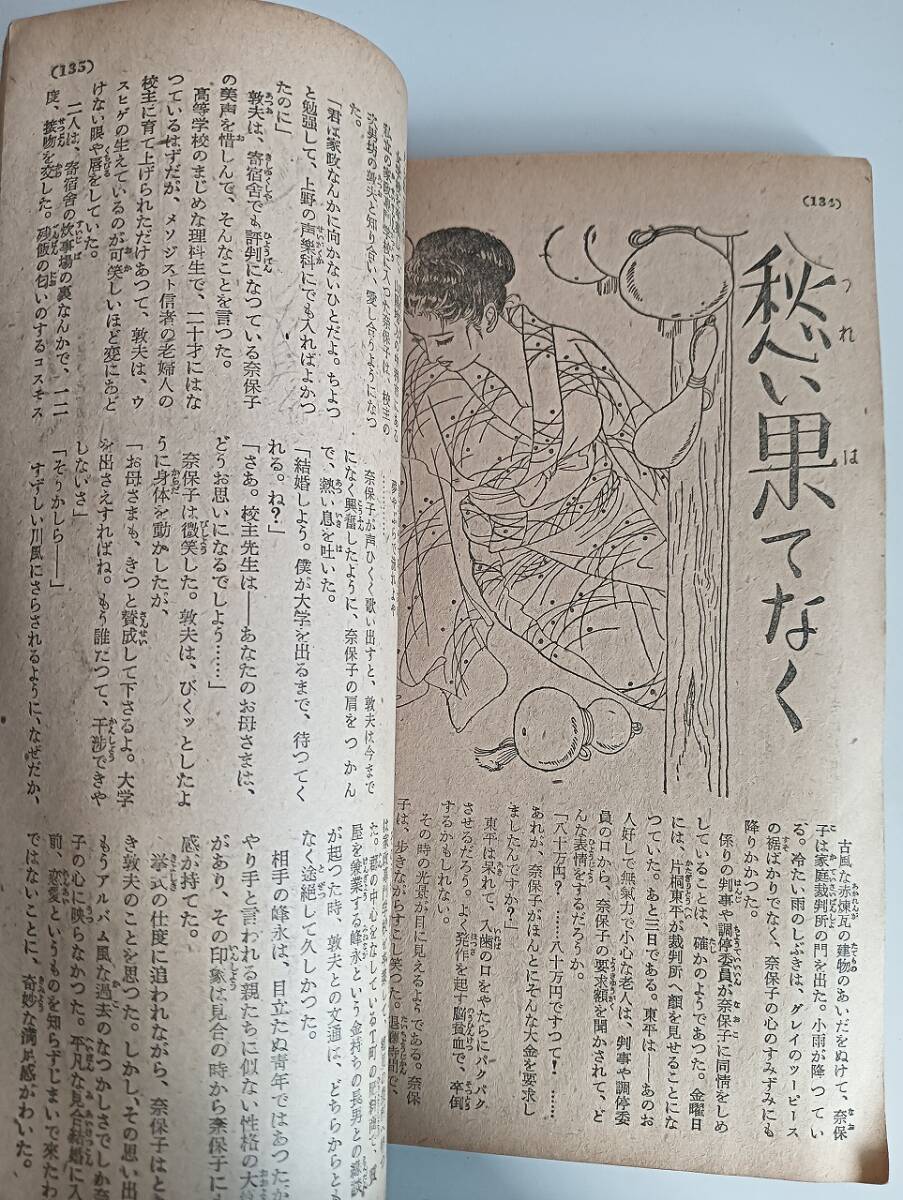 (134)
愁い果てなく
古風な赤煉瓦の建物のあいだをぬけて、奈保
子は家庭裁判所の門を出た。小雨が降つてい
る。冷たい雨のしぶきは、グレイのツーピース
の裾ばかりでなく、奈保子の心のすみずみにも
降りかかつた。
係りの判事や調停委員が奈保子に同情をしめ
していることは、確かのようであつた。金曜日
には、片桐東平が裁判所へ顔を見せることにな
つていた。あと三日である。東平は――あのお
人好しで無氣力で小心な老人は、判事や調停委
員の口から、奈保子の要求額を聞かされて、ど
んな表情をするだろうか。
「八十万円？　八十万円ですつて！……
あれが、奈保子がほんとにそんな大金を要求し
ましたんですか？」
東平は呆れて、入歯の口をやたらにパクパク
させるだろう。よく発作を起す脳貧血で、卒倒
するかもしれない。
その時の光景が目に見えるようである。奈保
子は、歩きながらすこし笑つた。
(135)
入つた奈保子は、校主の
次男坊の敦夫と知り合い、愛し合うようになつ
た。
「君は家政なんかに向かないひとだよ。ちよつ
と勉强して、上野の声樂科にでも入ればよかつ
たのに」
敦夫は、寄宿舎でも評判になつている奈保子
の美声を惜しんで、そんなことを言つた。
高等学校のまじめな理科生で、二十才にはな
つているはずだが、メソジスト信者の老婦人の
校主に育て上げられただけあつて、敦夫は、ウ
スヒゲの生えているのが可笑しいほど変にあど
けない眼や唇をしていた。
二人は、寄宿舎の炊事場の裏なんかで、一二
度、接吻を交した。残飯の匂いのするコスモス
奈保子が声ひくく歌い出すと、敦夫は今まで
になく興奮したように、奈保子の肩をつかん
で、熱い息を吐いた。
「結婚しよう。僕が大学を出るまで、待つてく
れる。ね？」
「さあ。校主先生は――あなたのお母さまは、
どうお思いになるでしよう……」
奈保子は微笑した。敦夫は、びくッとしたよ
うに身体を動かしたが、
「お母さまも、きつと賛成して下さるよ。大学
を出さえすればね。もう誰だつて、干渉できや
しないさ」
「そうかしら――」
すずしい川風にさらされるように、なぜだか、
た。都の中心をなしているT町の
屋を兼業する峰永という金持ちの長男との縁談
が起つた時、敦夫との文通は、どちらからとも
なく途絶して久しかつた。
相手の峰永は、目立たぬ靑年ではあつたが
やり手と言われる親たちに似ない性格の
があり、その印象は見合の時から奈保子に
感が持てた。
挙式の仕度に追われながら、奈保子はと
き敦夫のことを思つた。しかし、その思い出
もうアルバム風な過去のなつかしさでしか奈
子の心に映らなかつた。平凡な見合結婚に入
前、恋愛というものを知らずじまいで來たわ
ではないことに、奇妙な満足感がわいた。